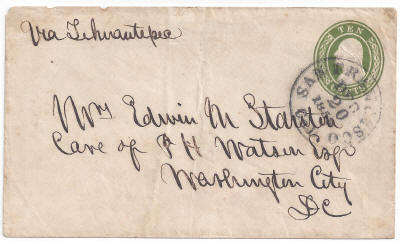 Via Tehuantepec
TEN
CENTS
SAN FRANCISCO
20
Mrs Edwin M Stanton
Care of P H Watson Esqr
Washington City
DC